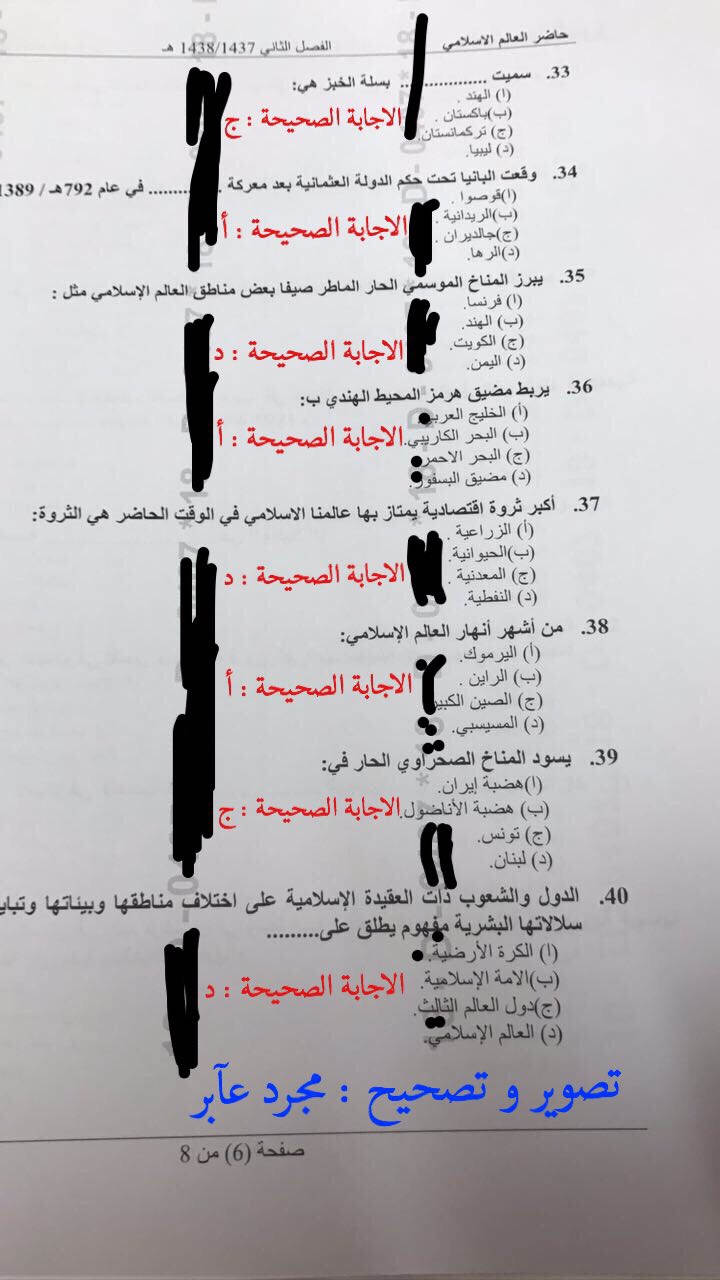 حاضر العالم الاسلامي
الفصل الثاني 1438/1437 هـ
33. سميت .................. بسلة الخبز هي:
(ا) الهند .
(ب)باكستان .
(ج) تركمانستان.
(د) ليبيا.
الاجابة الصحيحة : ج
34. وقعت البانيا تحت حكم الدولة العثمانية بعد معركة ............ في عام 792هـ / 1389
(ا)قوصوا .
(ب)الريدانية .
(ج)جالديران .
(د)الرها.
الاجابة الصحيحة : أ
35. يبرز المناخ الموسمي الحار الماطر صيفا بعض مناطق العالم الإسلامي مثل :
(ا) فرنسا.
(ب) الهند.
(ج) الكويت.
(د) اليمن.
الاجابة الصحيحة : د
36. يربط مضيق هرمز المحيط الهندي ب:
(أ) الخليج العربي
(ب) البحر الكاريبي.
(ج) البحر الاحمر
(د) مضيق البسفور.
الاجابة الصحيحة : أ
37. أكبر ثروة اقتصادية يمتاز بها عالمنا الاسلامي في الوقت الحاضر هي الثروة:
(أ) الزراعية .
(ب)الحيوانية.
(ج) المعدنية .
(د) النفطية.
الاجابة الصحيحة : د
38. من أشهر أنهار العالم الإسلامي:
(أ) اليرموك.
(ب) الراين .
(ج) الصين الكبير
(د) المسيسبي.
الاجابة الصحيحة : أ
39. يسود المناخ الصحراوي الحار في:
(ا)هضبة إيران.
(ب) هضبة الأناضول.
(ج) تونس.
(د) لبنان.
الاجابة الصحيحة : ج
40. الدول والشعوب ذات العقيدة الإسلامية على اختلاف مناطقها وبيئاتها وتباي
سلالاتها البشرية مفهوم يطلق على.........
(ا) الكرة الأرضية.
(ب)الامة الإسلامية.
(ج)دول العالم الثالث.
(د) العالم الإسلامي.
الاجابة الصحيحة : د
تصوير و تصحيح : مجرد عآبر
صفحة (6) من 8